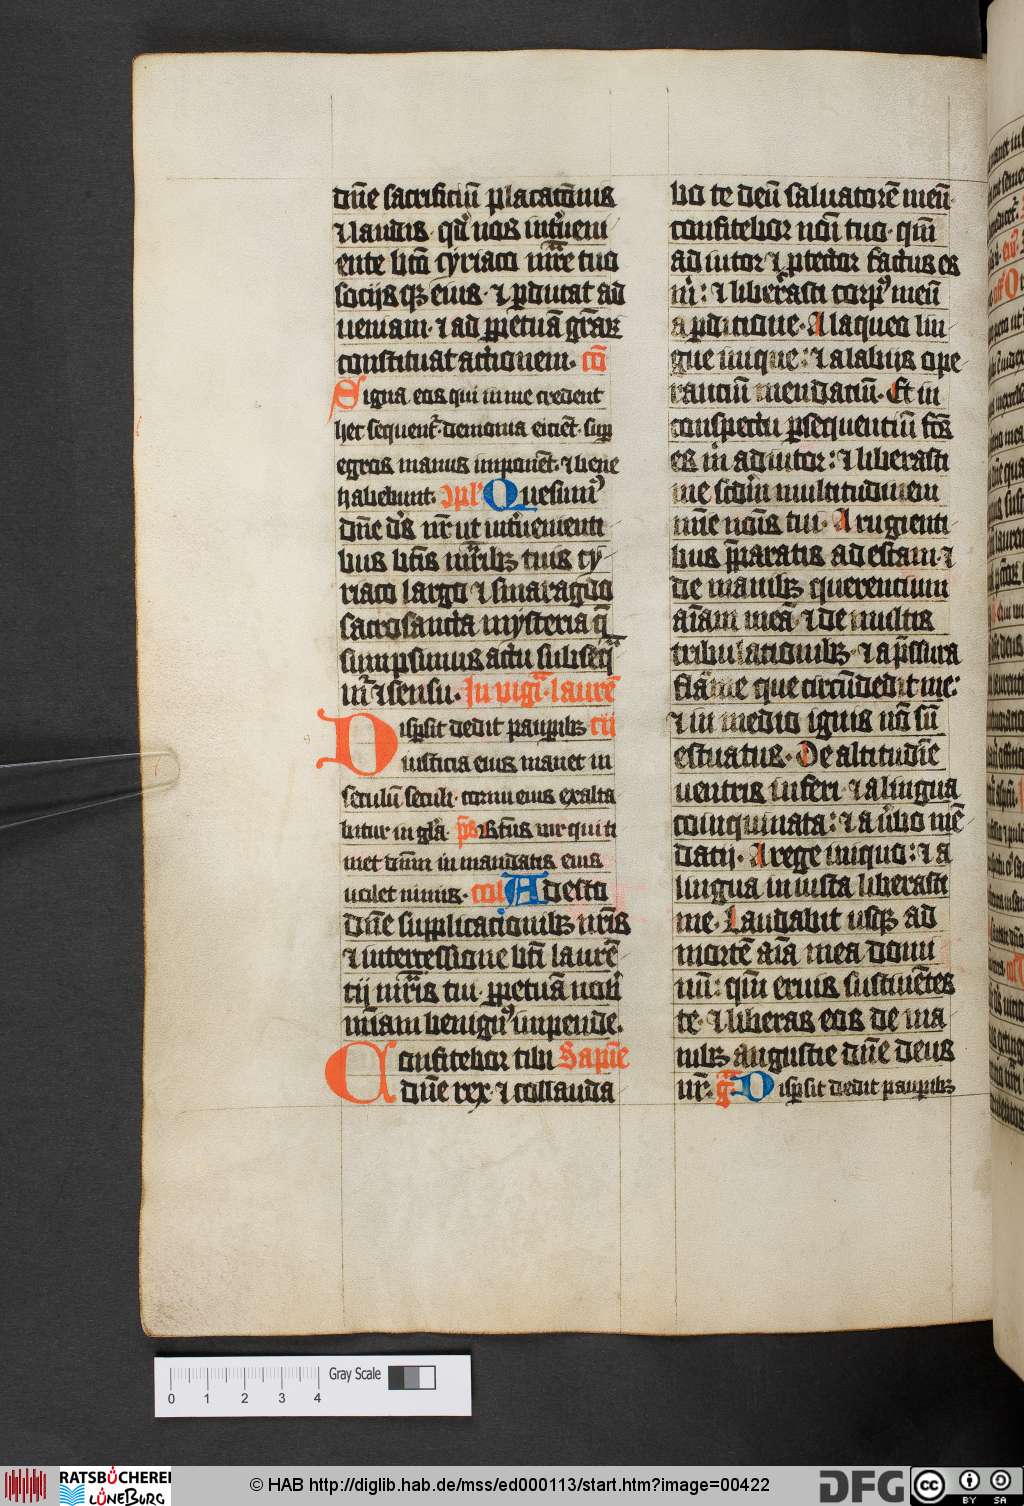 dn̄e sacrificiū placatōnis
⁊ laudis · qd̕ nos int̕ueni
ente btō cyriaco mr̄e tuo
socijsqꝫ eius · ⁊ ꝑducat ad
ueniam · ⁊ ad ꝑpetuā gr̄aꝝ
constituat actionem · cō
Signa eos qui in me credent
hec sequent̕ · demonia eicient · suꝑ
egros manus imponēt · ⁊ bene
habebunt · 9pl̕ Quesum⁹
dn̄e ds̄ nr̄ ut int̕uenienti
bus btīs mr̄ibꝫ tuis cy
riaco largo ⁊ smaragdo
sacrosancta mysteria q̄
sumpsimus actu subseq̄
m̄r ⁊ sensu · In vigl̕ · laurē
Dispsit dedit pauꝑibꝫ cij
iusticia eius manet in
seculū seculi · cornu eius exalta
bitur in gl̄a · ps̄ Btūs uir qui ti
met dn̄m in mandatis eius
uolet nimis · col Adesto
dn̄e supplicacionibꝫ nr̄is
⁊ intercessione bti laurē
cij mr̄is tui · ꝑpetuā nob̕
m̄iam benign⁹ impende ·
Confitebor tibi Sapiē
dn̄e rex · ⁊ collauda
bo te deū saluatorē meū ·
confitebor noī tuo · qm̄
adiutor ⁊ ꝓtector factus es
m̄ : ⁊ liberasti corp⁹ meū
a ꝑditione · A laqueo lin
gue inique : ⁊ a labijs ope
ranciū mendaciū · Et in
conspectu ꝑsequentiū fc̄s
es m̄ adiutor : ⁊ liberasti
me scd̄m multitudinem
mīe noīs tui · A rugienti
bus p̄paratis ad escam · ⁊
de manibꝫ querentium
aīam meā · ⁊ de multis
tribulationibꝫ · ⁊ a p̄ssura
flāme que circūdedit me :
⁊ in medio ignis nō sū
estuatus · De altitudīe
uentris inferi · ⁊ a lingua
coinquinata : ⁊ a u̕bo mē
dacij · A rege iniquo : ⁊ a
lingua iniusta liberasti
me · Laudabit usqꝫ ad
mortē aīa mea domi
nū : qm̄ eruis sustinētes
te · ⁊ liberas eos de ma
nibꝫ angustie dn̄e deus
nr̄ · gr̄ Dispsit dedit pauꝑibꝫ
0 1 2 3 4
Gray Scale
RATSBÜCHEREI
LÜNEBURG
© HAB http://diglib.hab.de/mss/ed000113/start.htm?image=00422
DFG
cc BY SA